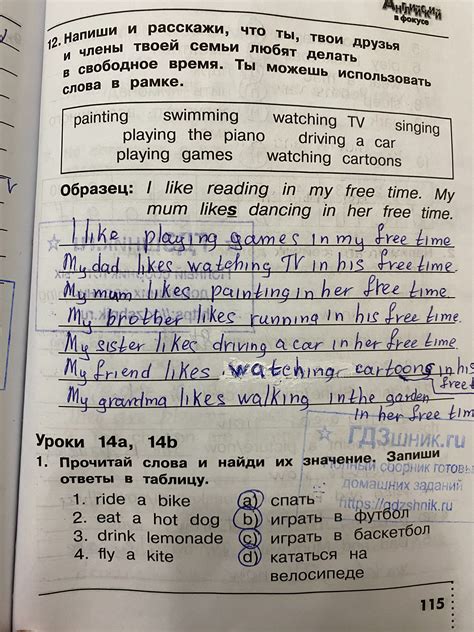 Английский
в фокусе
12. Напиши и расскажи, что ты, твои друзья
и члены твоей семьи любят делать
в свободное время. Ты можешь использовать
слова в рамке.
painting swimming watching TV singing
playing the piano driving a car
playing games watching cartoons
Образец: I like reading in my free time. My
mum likes dancing in her free time.
I like playing games in my free time
My dad likes watching TV in his free time.
My mum likes painting in her free time
My brother likes running in his free time.
My sister likes driving a car in her free time.
My friend likes watching cartoons in his
free time
My grandma likes walking in the garden
in her free time
ГДЗшник.ru
Полный сборник готовых
домашних заданий
https://gdzshnik.ru
Уроки 14a, 14b
1. Прочитай слова и найди их значение. Запиши
ответы в таблицу.
1. ride a bike a) спать
2. eat a hot dog b) играть в футбол
3. drink lemonade c) играть в баскетбол
4. fly a kite d) кататься на
велосипеде
115